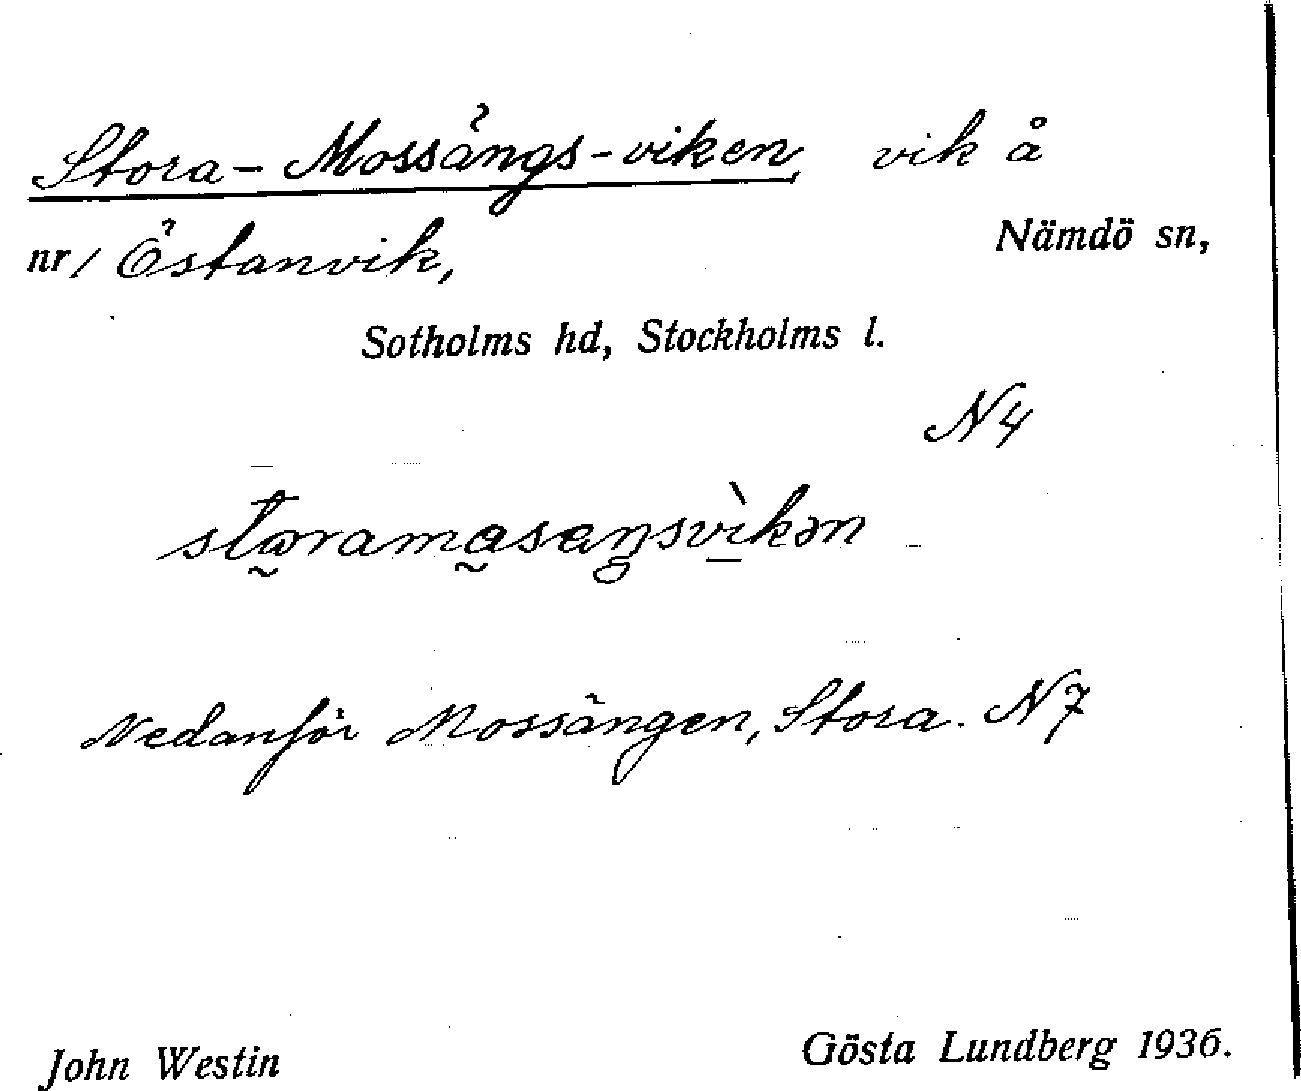 Stora-Mossängs-viken, vik å
nr/ Östanvik, Nämdö sn,
Sotholms hd, Stockholms l.
N4
Nedanför Mossängen, Stora. N7
John Westin Gösta Lundberg 1936.